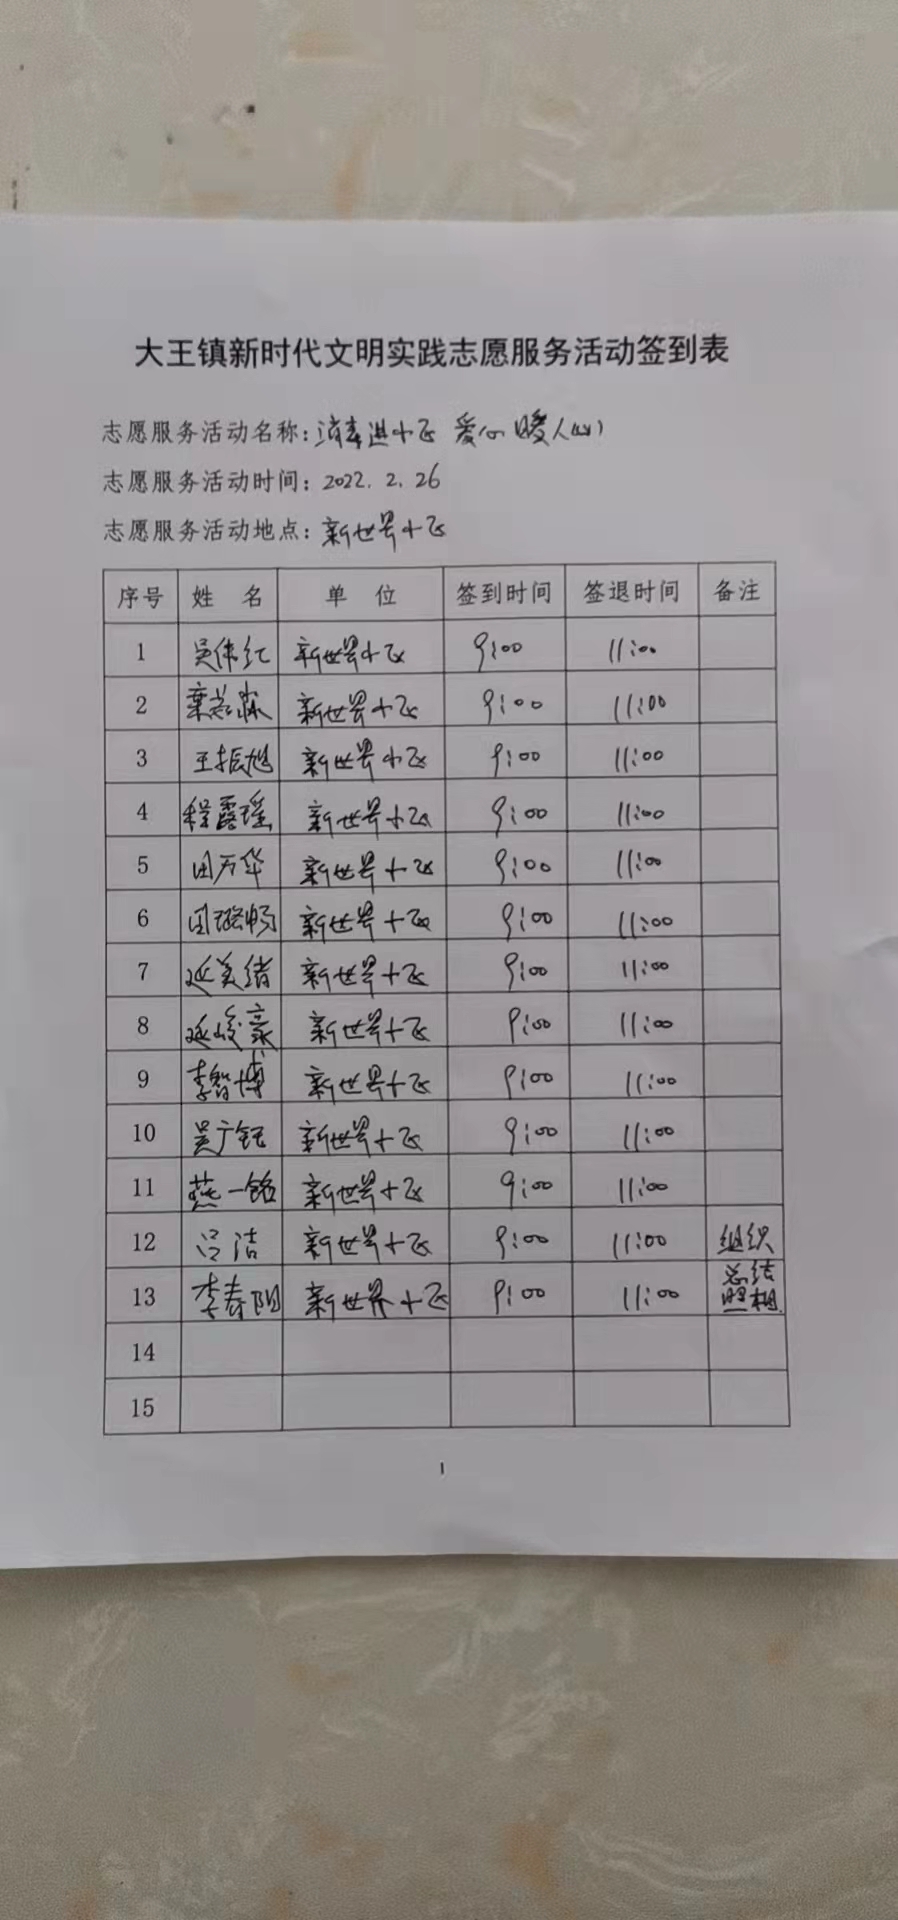 大王镇新时代文明实践志愿服务活动签到表
志愿服务活动名称：消毒进小区 爱心暖人心
志愿服务活动时间：2022.2.26
志愿服务活动地点：新世界小区
序号 姓名 单位 签到时间 签退时间 备注
1 吴伟红 新世界小区 9:00 11:00
2 新世界小区 9:00 11:00
3 王振旭 新世界小区 9:00 11:00
4 程露瑶 新世界小区 9:00 11:00
5 田万华 新世界小区 9:00 11:00
6 田璐畅 新世界小区 9:00 11:00
7 延美绪 新世界小区 9:00 11:00
8 延峻豪 新世界小区 9:00 11:00
9 李智博 新世界小区 9:00 11:00
10 吴广钰 新世界小区 9:00 11:00
11 燕一铭 新世界小区 9:00 11:00
12 吕洁 新世界小区 9:00 11:00 组织
13 李春阳 新世界小区 9:00 11:00 总结照相
14
15
1